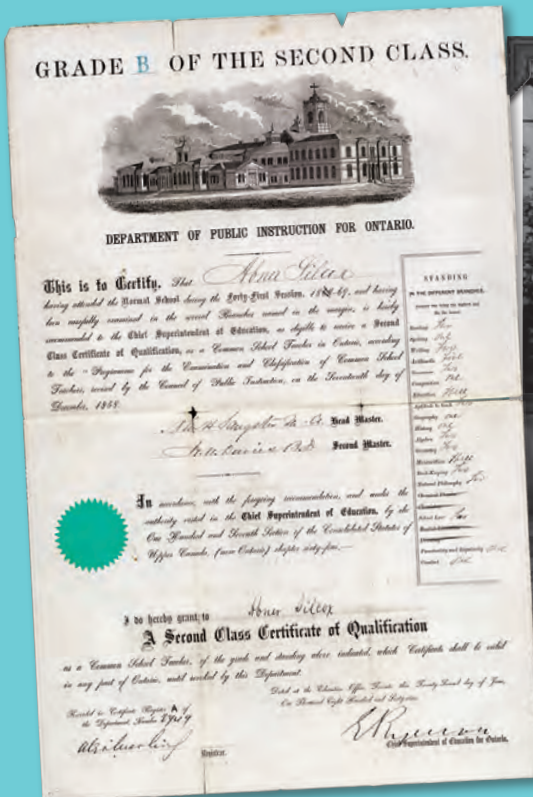 GRADE B OF THE SECOND CLASS.
DEPARTMENT OF PUBLIC INSTRUCTION FOR ONTARIO.
This is to Certify, That Abner Silcox
having attended the Normal School during the Forty-First Session, 1869, and having
been carefully examined in the several Branches named in the margin, is hereby
recommended to the Chief Superintendent of Education, as eligible to receive a Second
Class Certificate of Qualification, as a Common School Teacher in Ontario, according
to the "Programme for the Examination and Classification of Common School
Teachers, revised by the Council of Public Instruction, on the Seventeenth day of
December, 1858.
Head Master.
Second Master.
STANDING
IN THE DIFFERENT BRANCHES.
Reading
Spelling
Writing
Arithmetic
Grammar
Composition
Education
Geography
History
Algebra
Geometry
Mensuration
Book-Keeping
Natural Philosophy
School Law
Punctuality and Regularity
Conduct
In accordance with the foregoing recommendation, and under the
authority vested in the Chief Superintendent of Education, by the
One Hundred and Seventh Section of the Consolidated Statutes of
Upper Canada, (now Ontario) chapter sixty-four,
I do hereby grant to Abner Silcox
A Second Class Certificate of Qualification
as a Common School Teacher, of the grade and standing above indicated, which Certificate shall be valid
in any part of Ontario, until revoked by this Department.
Dated at the Education Office, Toronto this Twenty-Second day of June,
One Thousand Eight Hundred and Sixty-nine.
Recorded in Certificate Register A of
the Department, Number
Registrar.
Chief Superintendent of Education for Ontario.